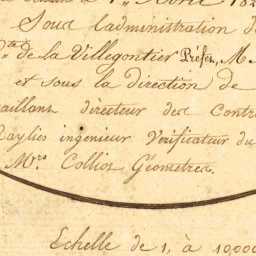 Sous l'administration d
de la Villegontier Préfet, M.
et sous la direction de
aillant directeur des Contr
Daylies ingenieur Vérificateur du
Mrs Colliot Géometres.
Echelle de 1, à 10,000